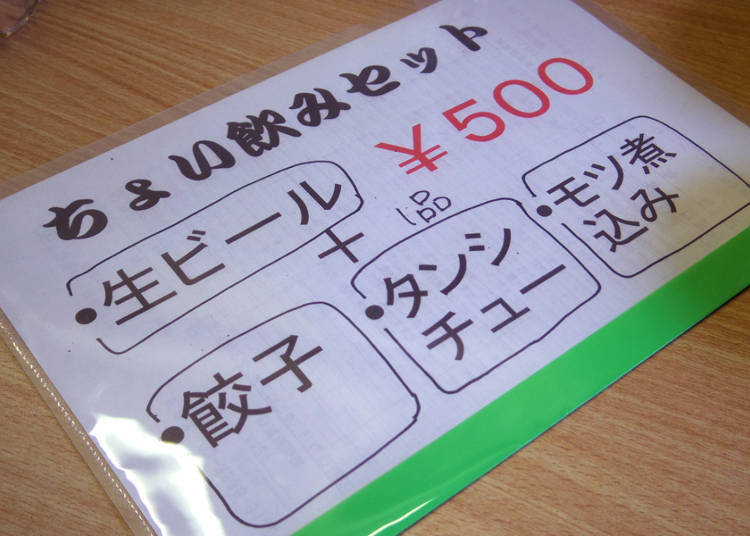 ちょい飲みセット
¥500
・生ビール
+
一品
・餃子
・タンシ
チュー
・モツ煮
込み